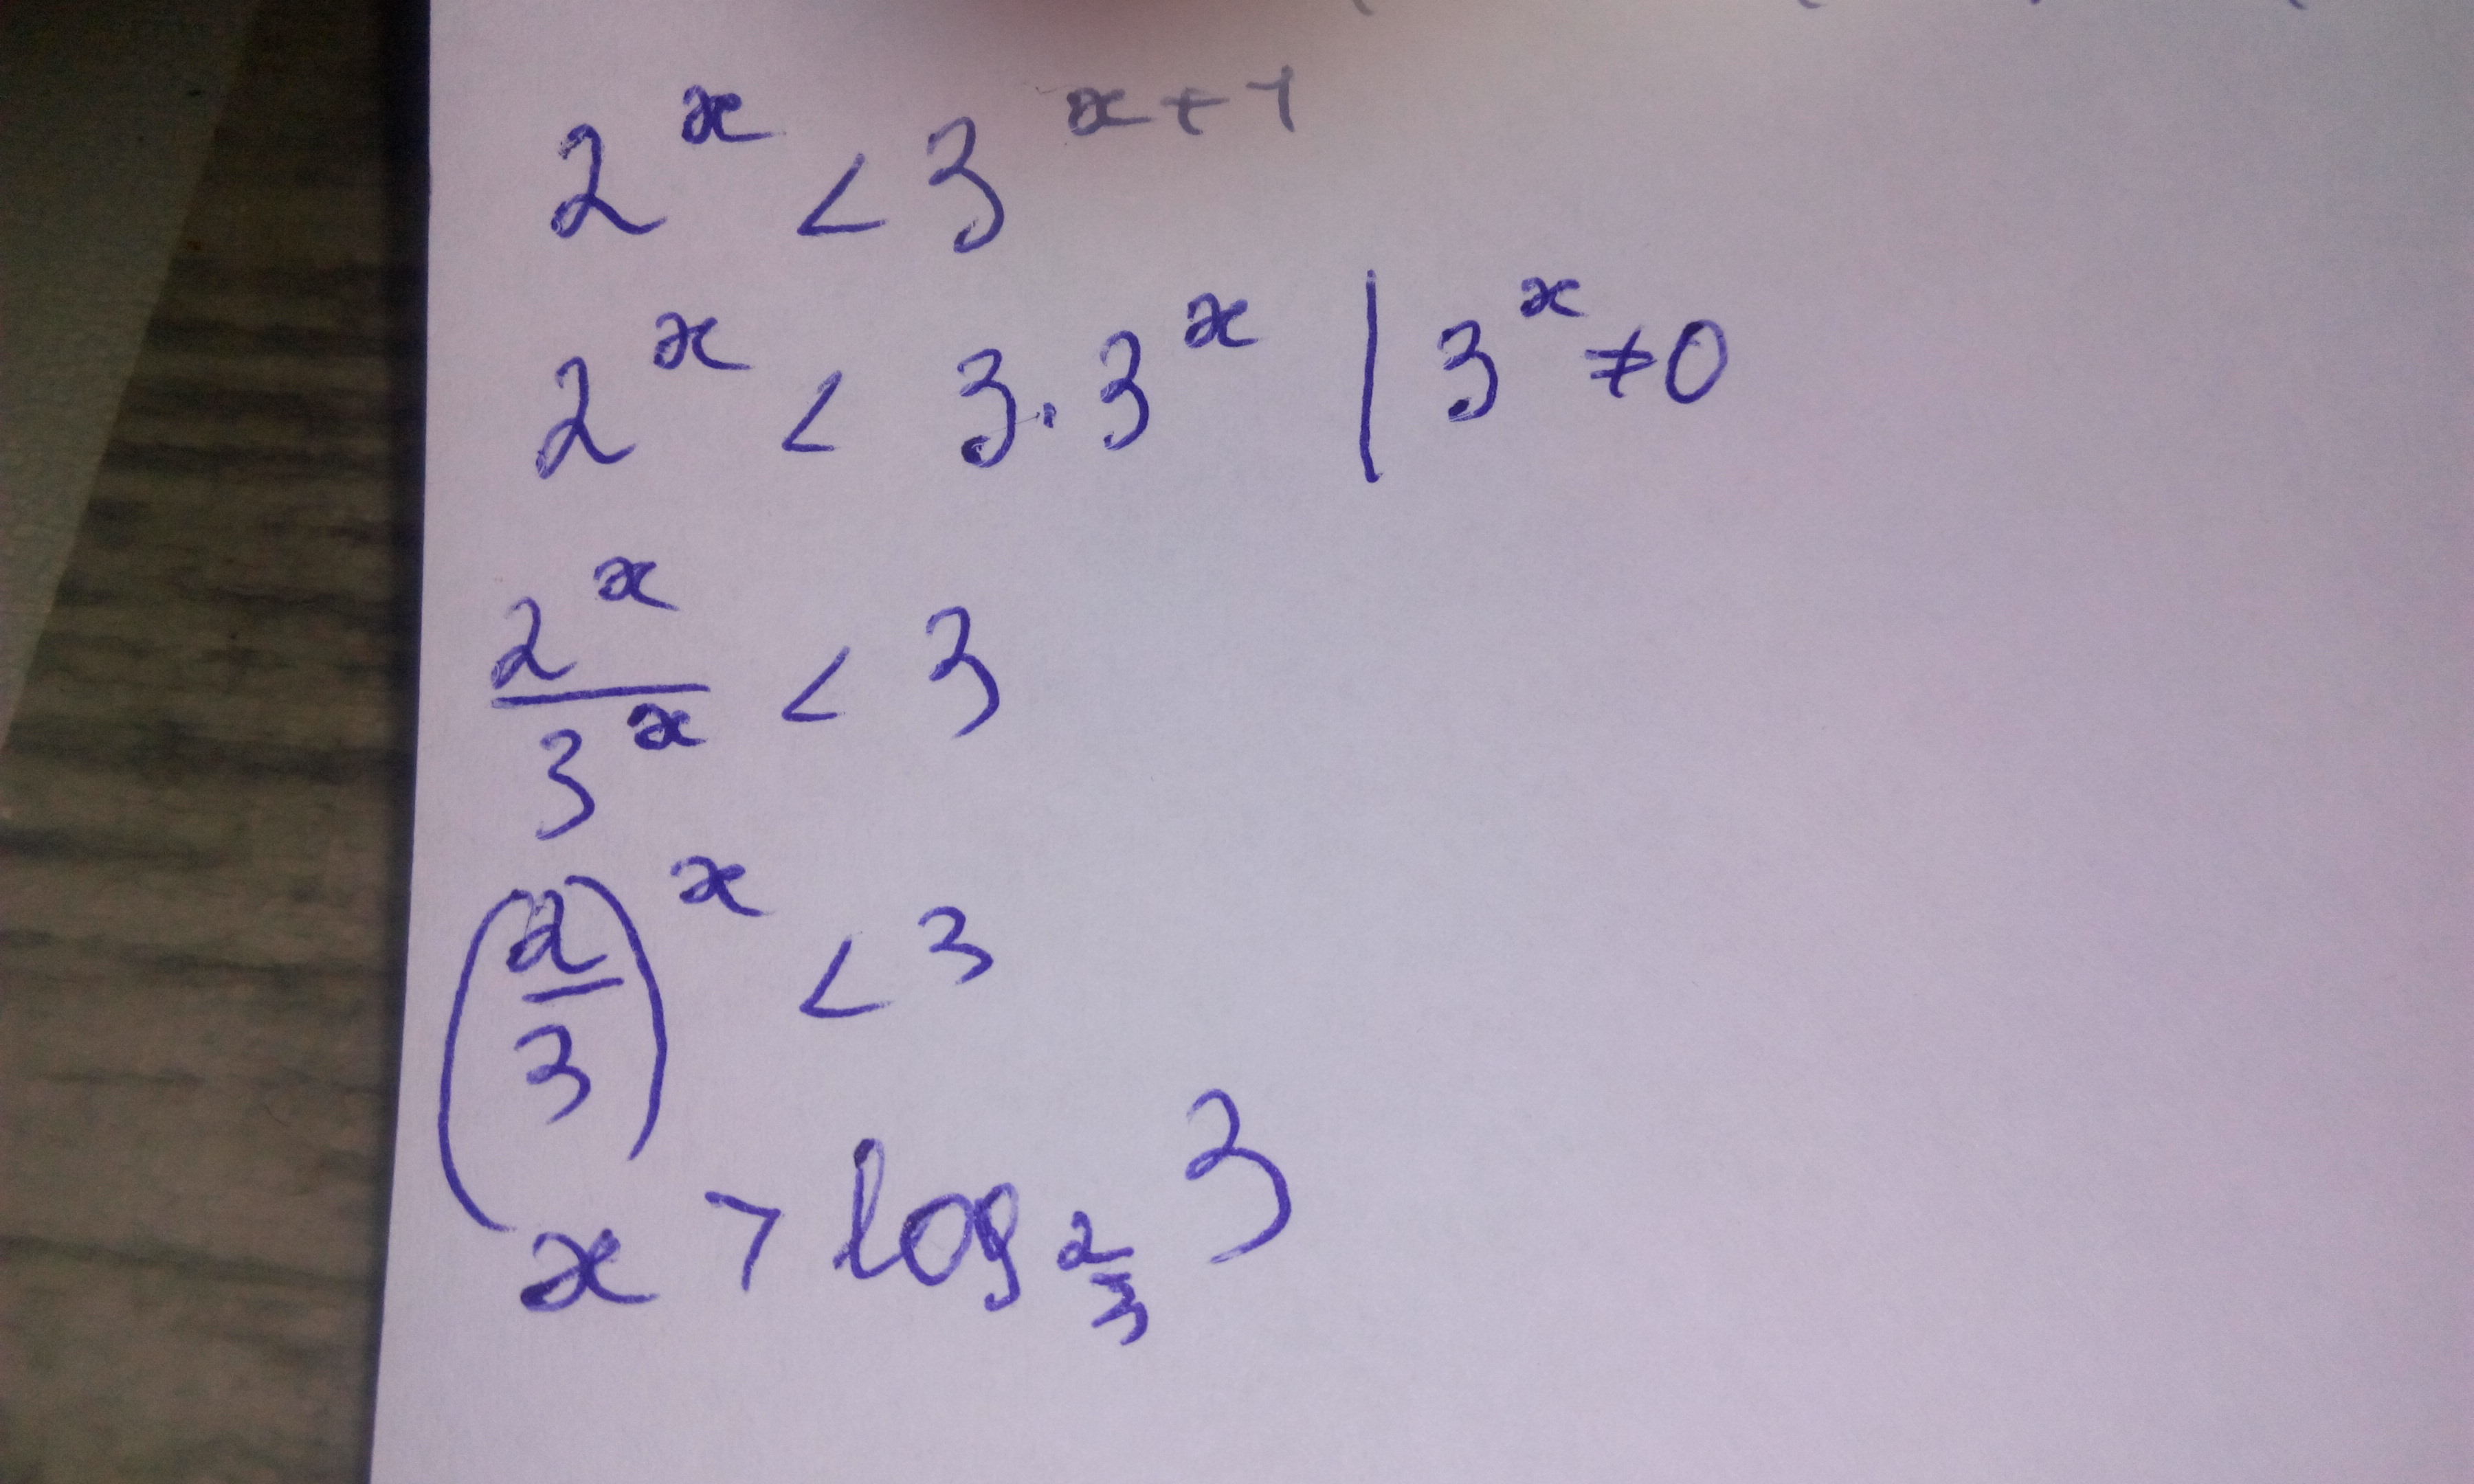 2^x < 3^(x+1)
2^x < 3·3^x | 3^x ≠ 0
2^x/3^x < 3
(2/3)^x < 3
x > log_(2/3) 3